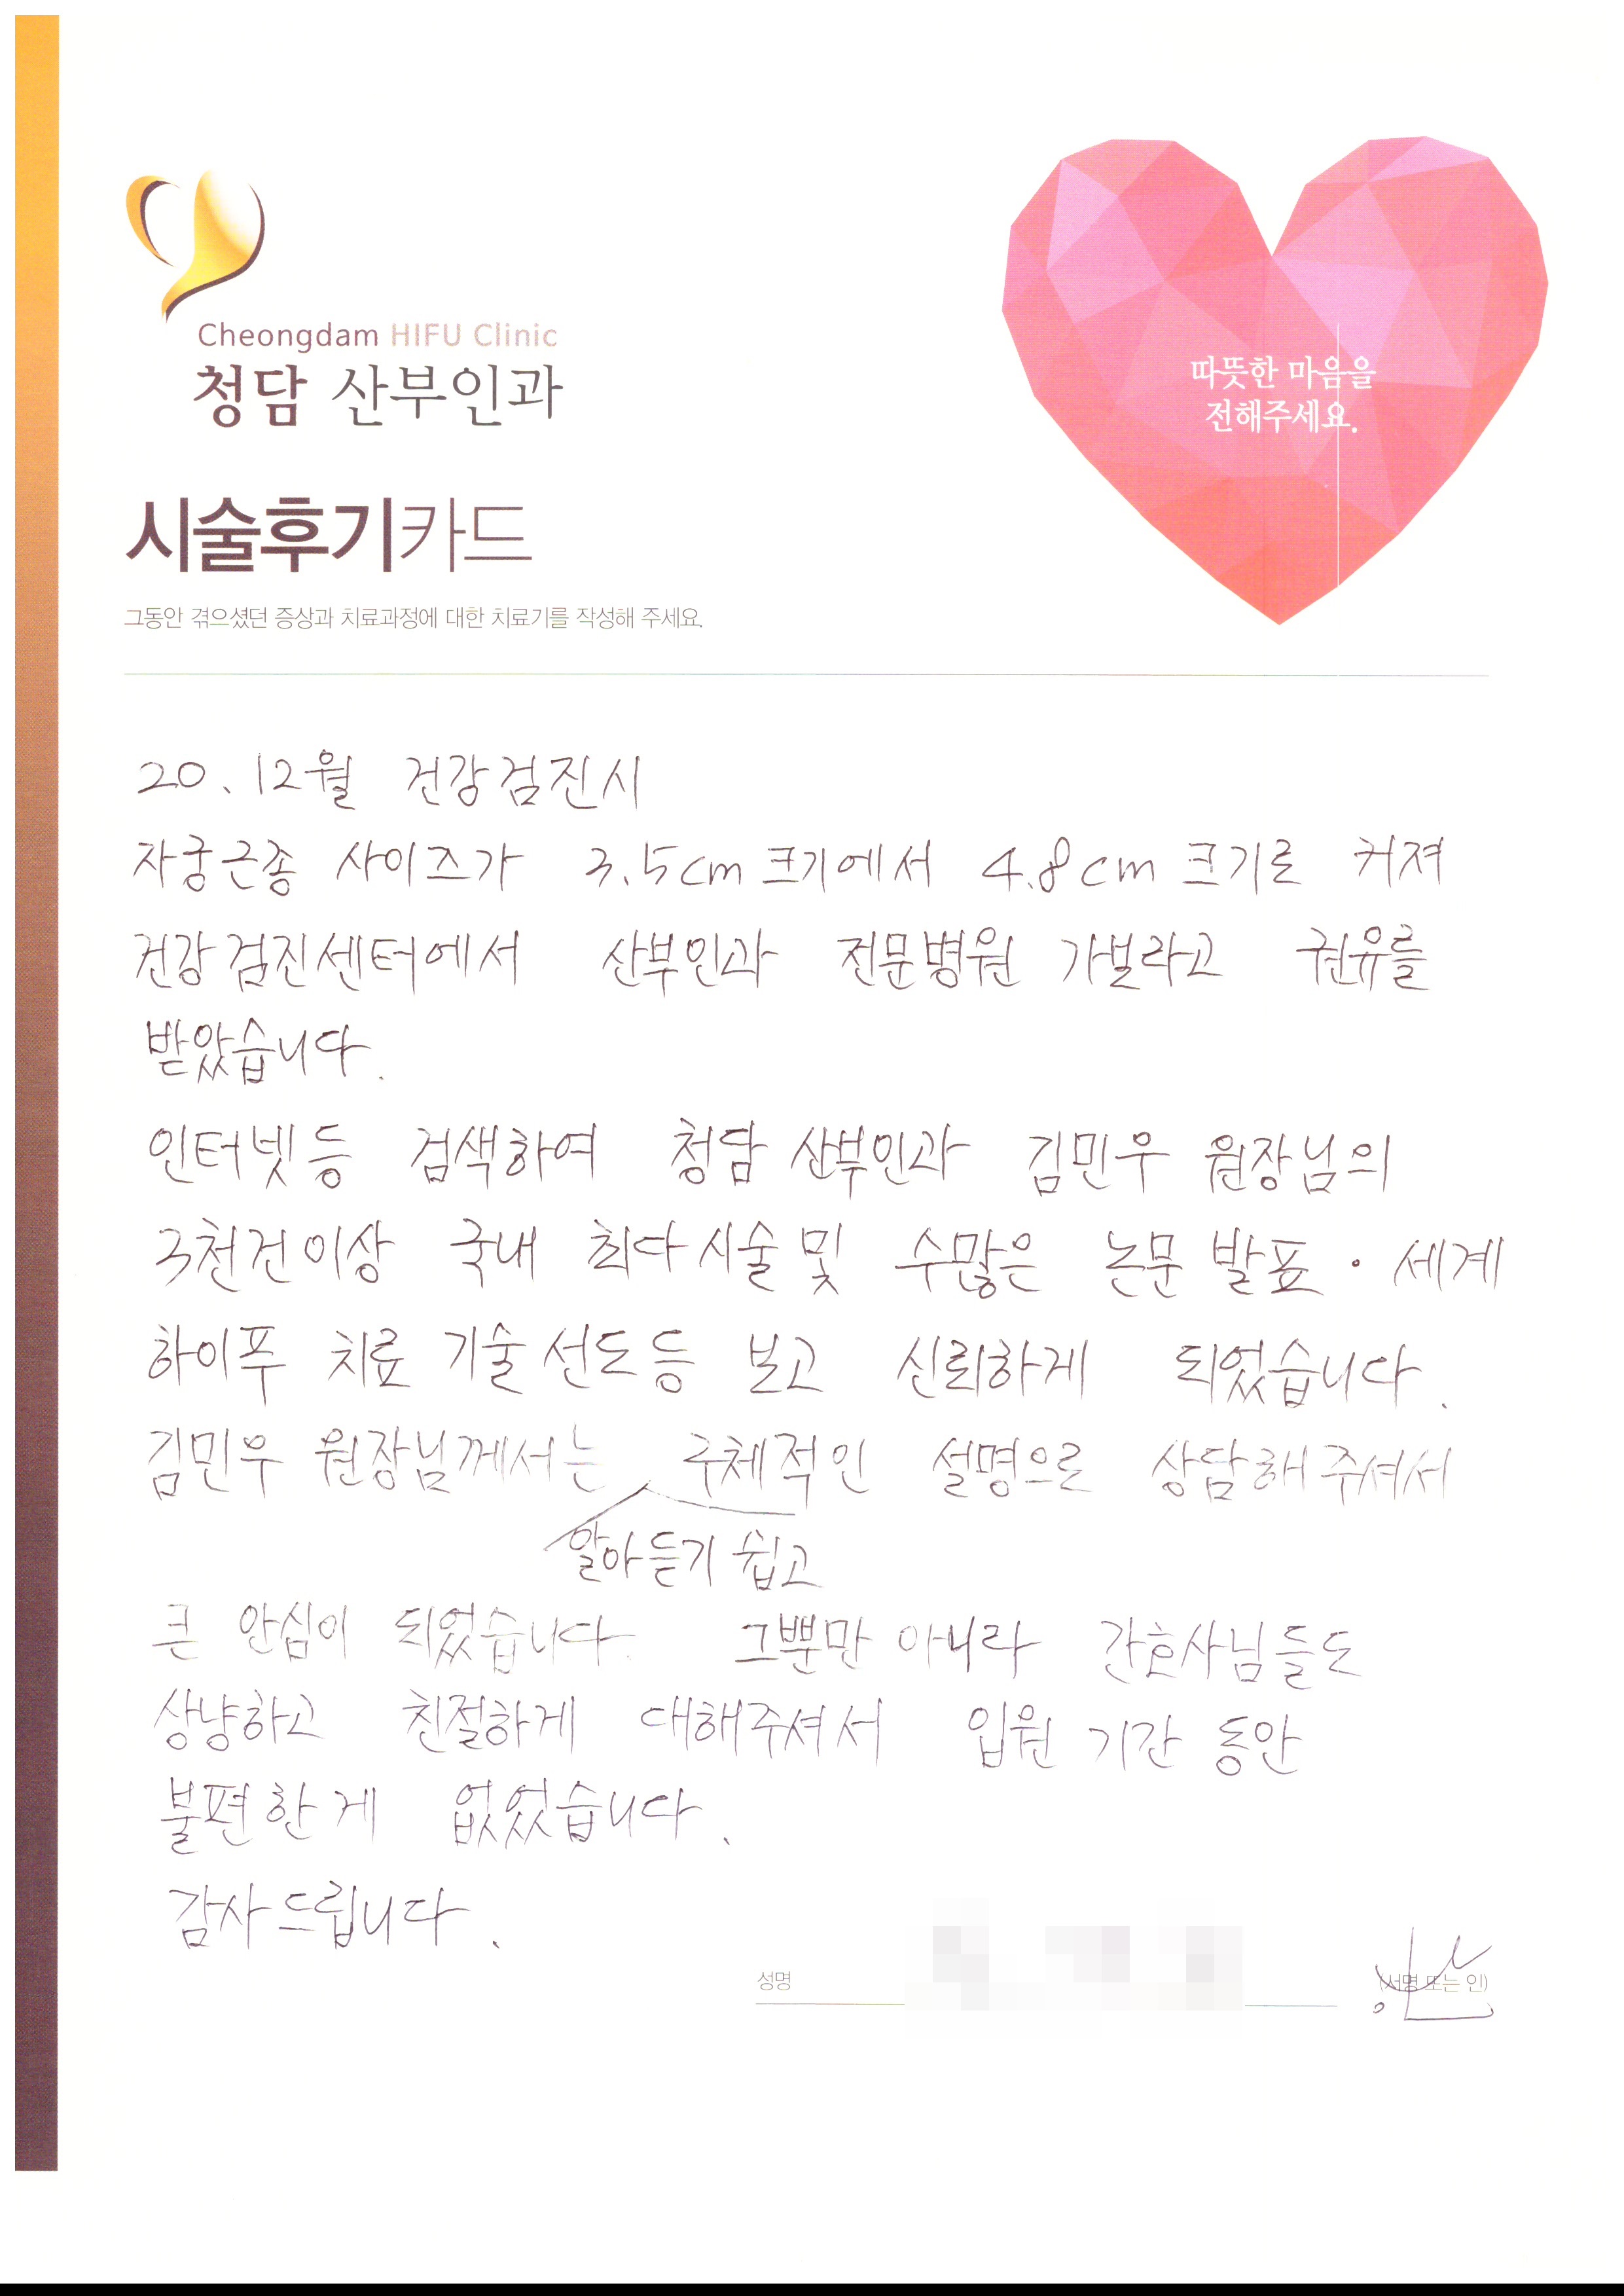 Cheongdam HIFU Clinic
청담 산부인과
따뜻한 마음을
전해주세요.
시술후기카드
그동안 겪으셨던 증상과 치료과정에 대한 치료기를 작성해 주세요.
20. 12월 건강검진시
자궁근종 사이즈가 3.5cm 크기에서 4.8cm 크기로 커져
건강검진센터에서 산부인과 전문병원 가보라고 권유를
받았습니다.
인터넷등 검색하여 청담 산부인과 김민우 원장님의
3천건이상 국내 최다시술및 수많은 논문 발표 · 세계
하이푸 치료 기술선도등 보고 신뢰하게 되었습니다.
김민우 원장님께서는 구체적인 설명으로 상담해주셔서
알아듣기 쉽고
큰 안심이 되었습니다. 그뿐만 아니라 간호사님들도
상냥하고 친절하게 대해주셔서 입원 기간 동안
불편한게 없었습니다.
감사드립니다.
성명 (서명 또는 인)